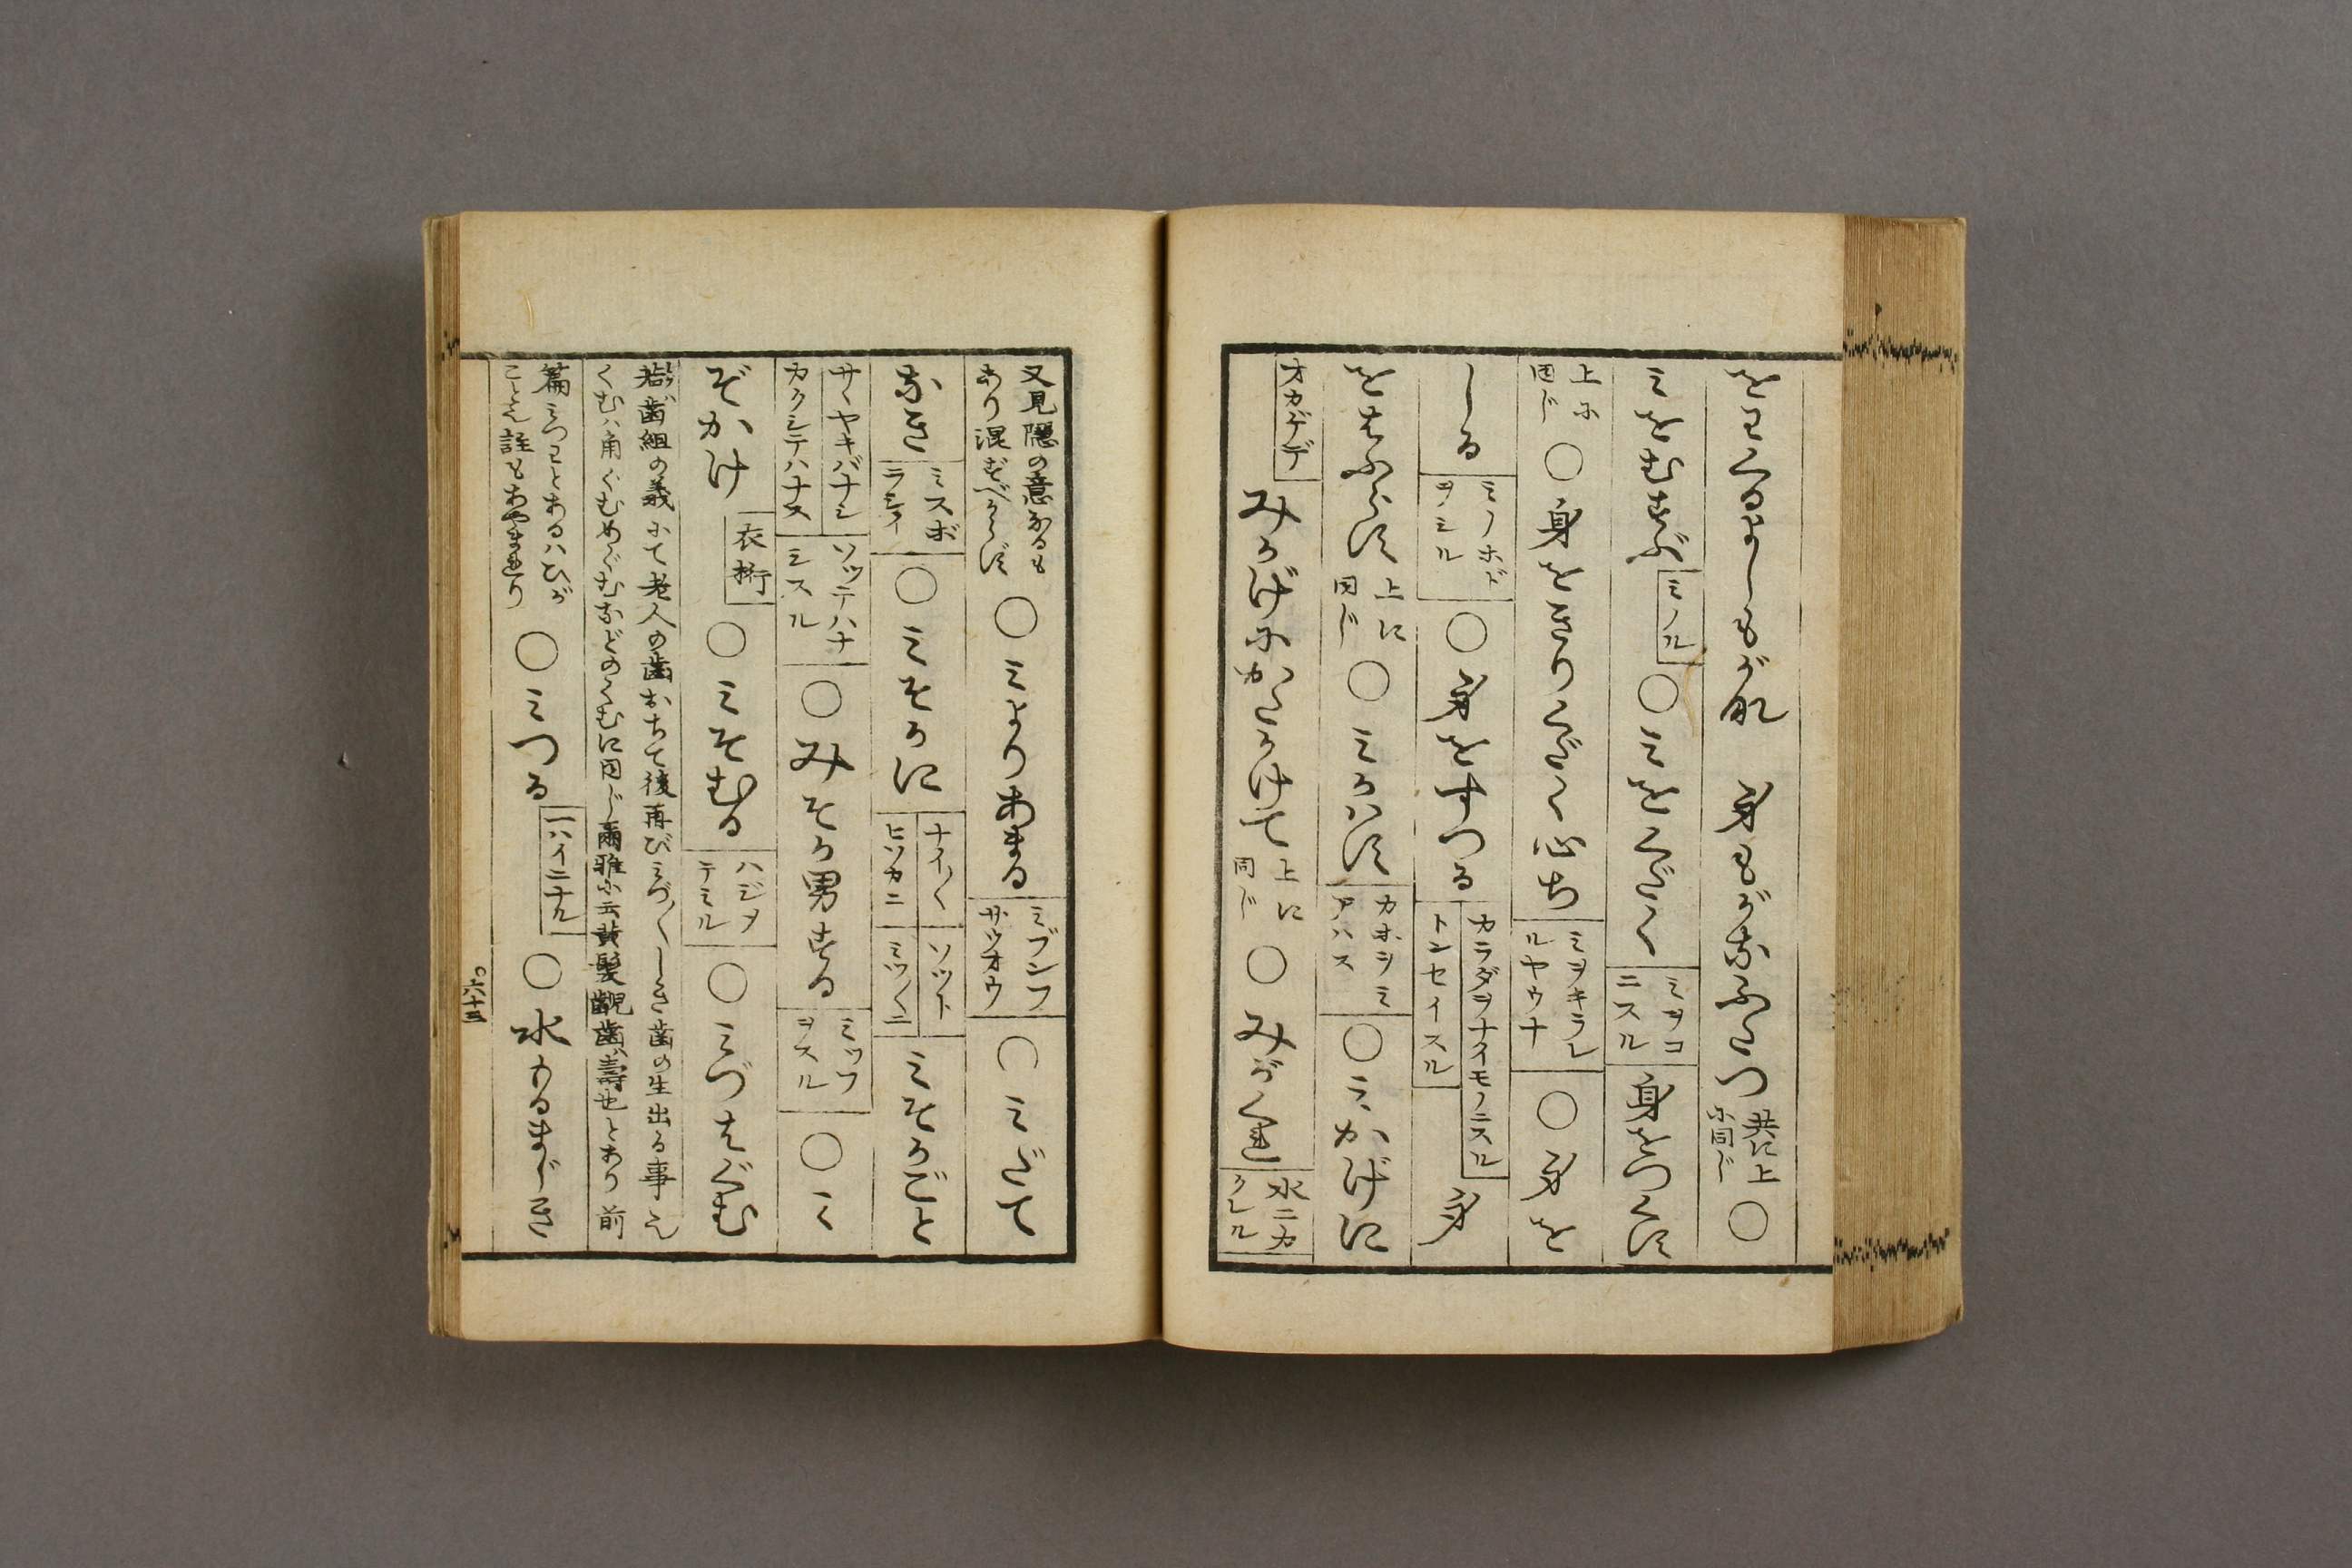 をわくるよしもが那　身もがなふたつ 共に上に同じ ○
ミをむすぶ ミノル ○ ミをくだく ミヲコニスル 身をつくす
上に同じ ○ 身をきりくだく心ち ミヲキラレルヤウナ ○ 身を
しる ミノホドヲミル ○ 身をすつる カラダヲナイモノニスル トンセイスル 身
をはふらす 上に同じ ○ ミかはす カホヲミアハス ○ ミかげに
オカゲデ みかげにかくかけて 上に同じ ○ みがくれ 水ニカクレル
又見隠の意なるもあり混ずべからず ○ ミよりあまる ミブンフサウオウ ○ ミだて
なき ミスボラシイ ○ ミそかに ナイ〳〵 ヒソカニ ソット ミツ〳〵ニ ミそかごと
サヽヤキバナシ カクシテハナス ソッテハナミスル ○ みそか男する ミツフヲスル ○ ミ
ぞかけ 衣桁 ○ ミそむる ハジヲテミル ○ ミづはぐむ
若歯組の義にて老人の歯おちて後再びミづ〳〵しき歯の生出る事也
くむハ角ぐむめぐむなどのくむに同じ爾雅に云黄髪齯歯壽也とあり前
篇ミつわとあるハひが
こと也註もあやまれり ○ ミつる 一ハイニナル ○ 水もるまじき
六十三